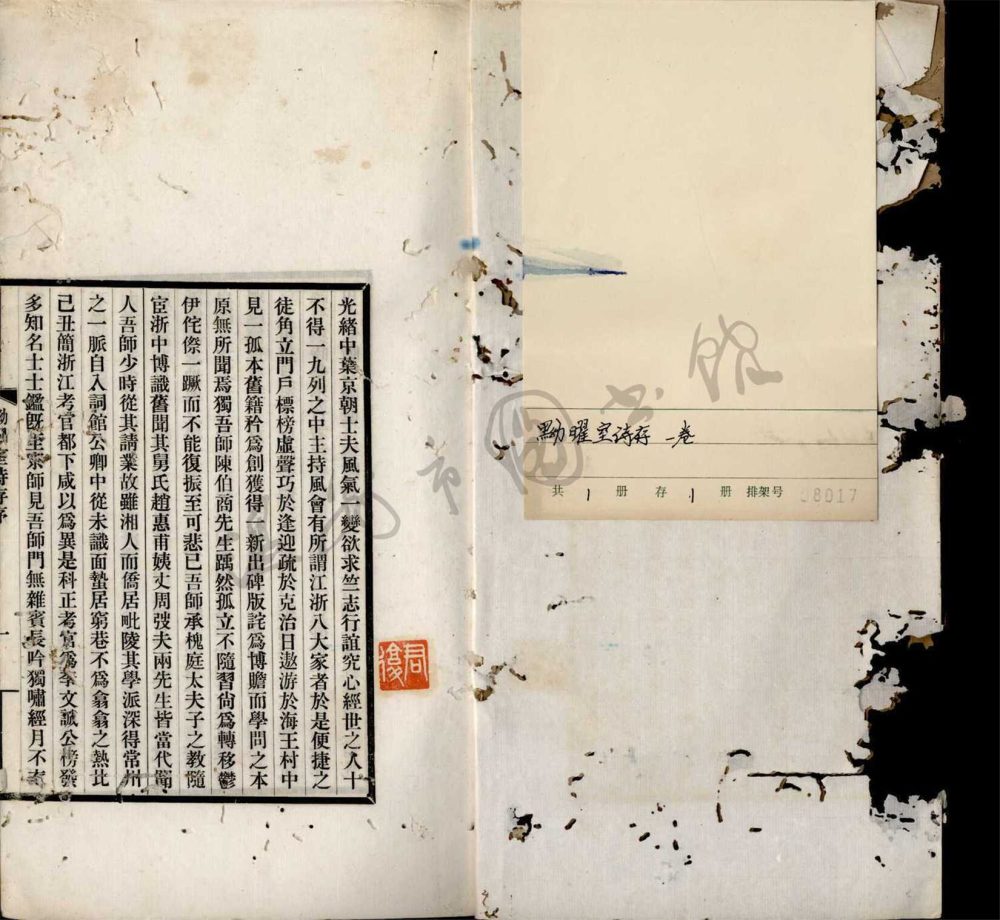 黝曜室诗存 一卷
共 1 册 存 1 册 排架号 08017
光緒中葉京朝士夫風氣一變欲求竺志行誼究心經世之人十
不得一九列之中主持風會有所謂江浙八大家者於是便捷之
徒角立門戶標榜虛聲巧於逢迎疏於克治日遨游於海王村中
見一孤本舊籍矜爲創獲得一新出碑版詫爲博贍而學問之本
原無所聞焉獨吾師陳伯商先生踽然孤立不隨習尚爲轉移鬱
伊侘傺一蹶而不能復振至可悲已吾師承槐庭太夫子之教隨
宦浙中博識舊聞其舅氏趙惠甫姨丈周弢夫兩先生皆當代
人吾師少時從其請業故雖湘人而僑居毗陵其學派深得常州
之一脈自入詞館公卿中從未識面蟄居窮巷不爲翕翕之熱比
己丑簡浙江考官都下咸以爲異是科正考官爲李文誠公榜發
多知名士士鑑既至京師見吾師門無雜賓長吟獨嘯經月不
室詩存序
一
君復
首都圖書館